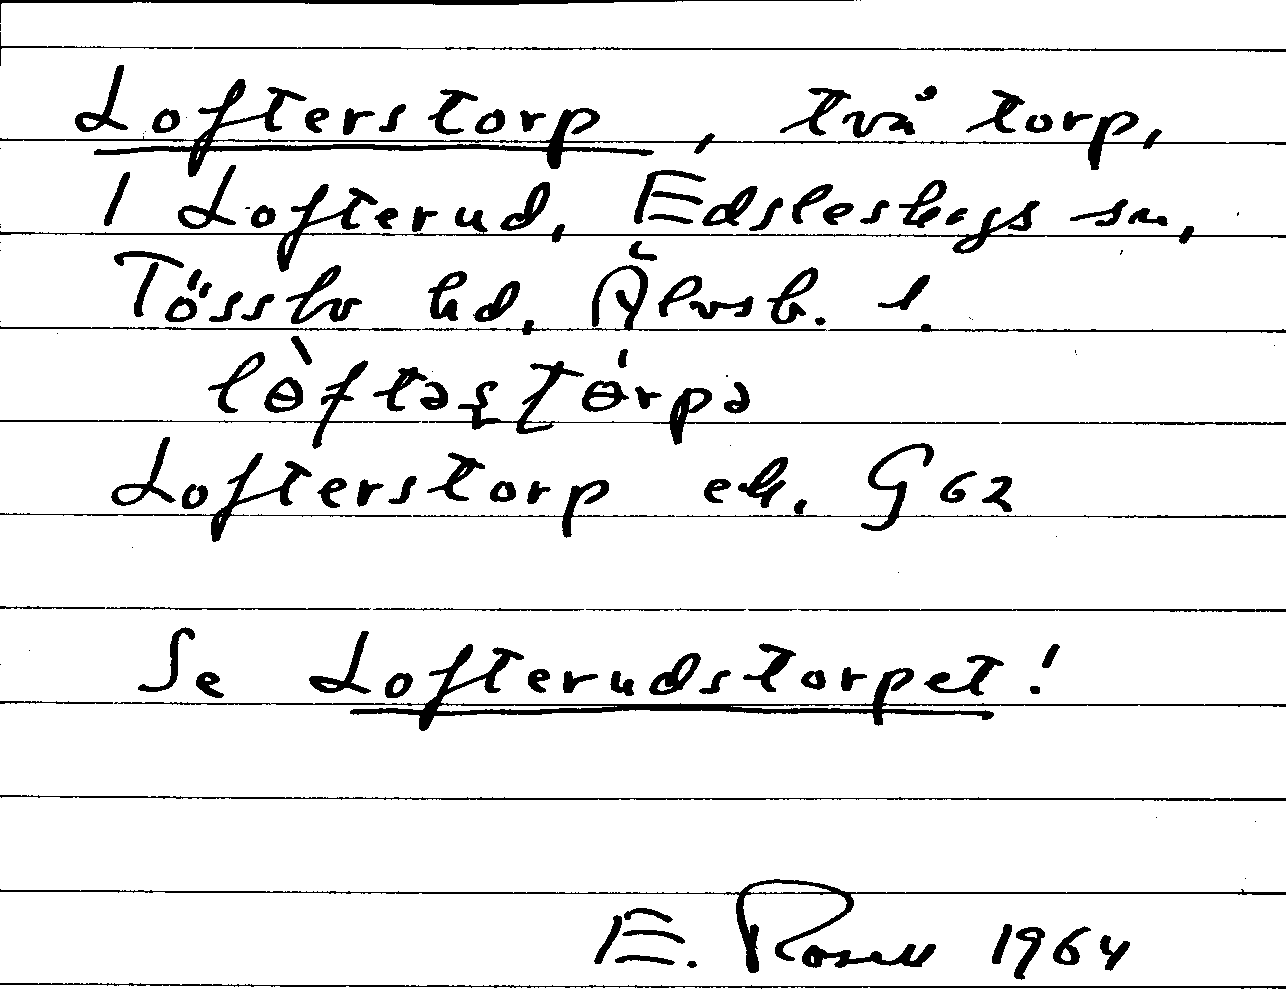 Lofterstorp, två torp,
1 Lofterud, Edsleskogs sn,
Tössbo hd, Älvsb. l.
lɵ̀ftəʂʈɵ́rpə
Lofterstorp ek. G 62
Se Lofterudstorpet!
E. Rosell 1964